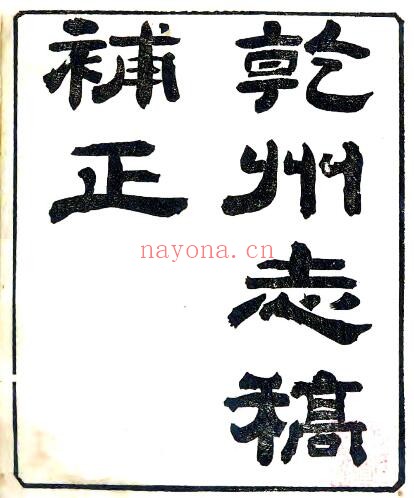 乾州志稿
補正
nayona.cn